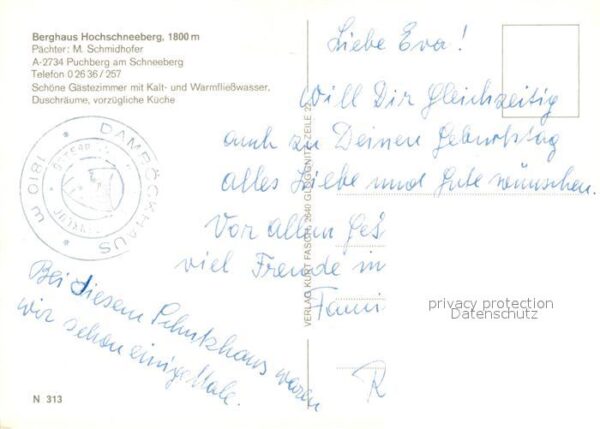 Berghaus Hochschneeberg, 1800 m
Pächter: M. Schmidhofer
A-2734 Puchberg am Schneeberg
Telefon 0 26 36 / 257
Schöne Gästezimmer mit Kalt- und Warmfließwasser,
Duschräume, vorzügliche Küche
DAMBÖCKHAUS
1810 m
Bei diesem Schutzhaus waren
wir schon einige Male.
N 313
VERLAG KURT FASCH, 2640 GLOGGNITZ, ZEILE
Liebe Eva!
Will Dir gleichzeitig
auch zu Deinen Geburtstag
alles Liebe und Gute wünschen.
Vor allem Ges
viel Freude in
Fami
R
privacy protection
Datenschutz